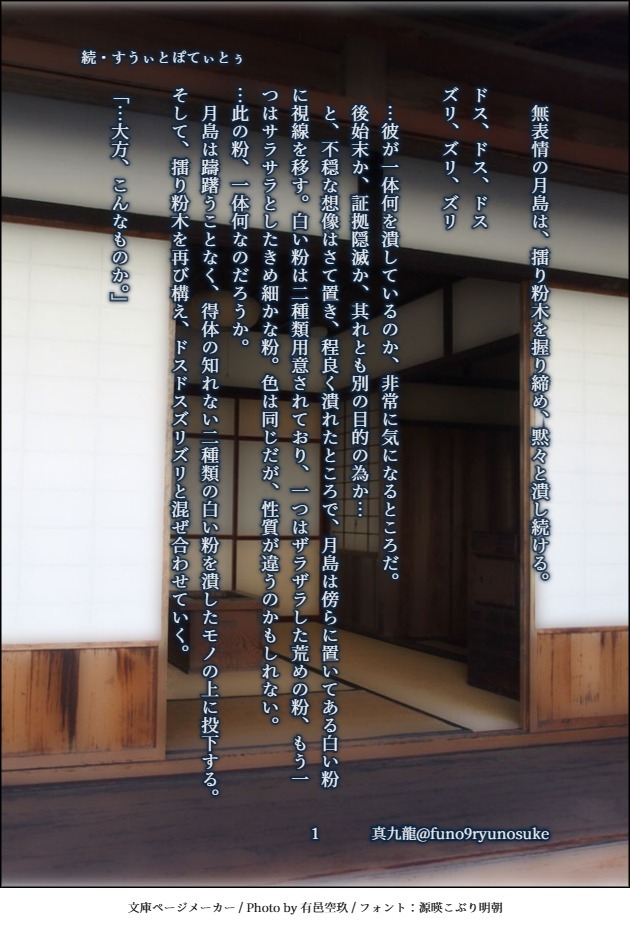 続・すうぃとぽてぃとぅ
無表情の月島は、擂り粉木を握り締め、黙々と潰し続ける。
ドス、ドス、ドス
ズリ、ズリ、ズリ
…彼が一体何を潰しているのか、非常に気になるところだ。
後始末か、証拠隠滅か、其れとも別の目的の為か…
と、不穏な想像はさて置き、程良く潰れたところで、月島は傍らに置いてある白い粉
に視線を移す。白い粉は二種類用意されており、一つはザラザラした荒めの粉、もう一
つはサラサラとしたきめ細かな粉。色は同じだが、性質が違うのかもしれない。
…此の粉、一体何なのだろうか。
月島は躊躇うことなく、得体の知れない二種類の白い粉を潰したモノの上に投下する。
そして、擂り粉木を再び構え、ドスドスズリズリと混ぜ合わせていく。
「…大方、こんなものか。」
1
真九龍@funo9ryunosuke
文庫ページメーカー / Photo by 有邑空玖 / フォント：源暎こぶり明朝